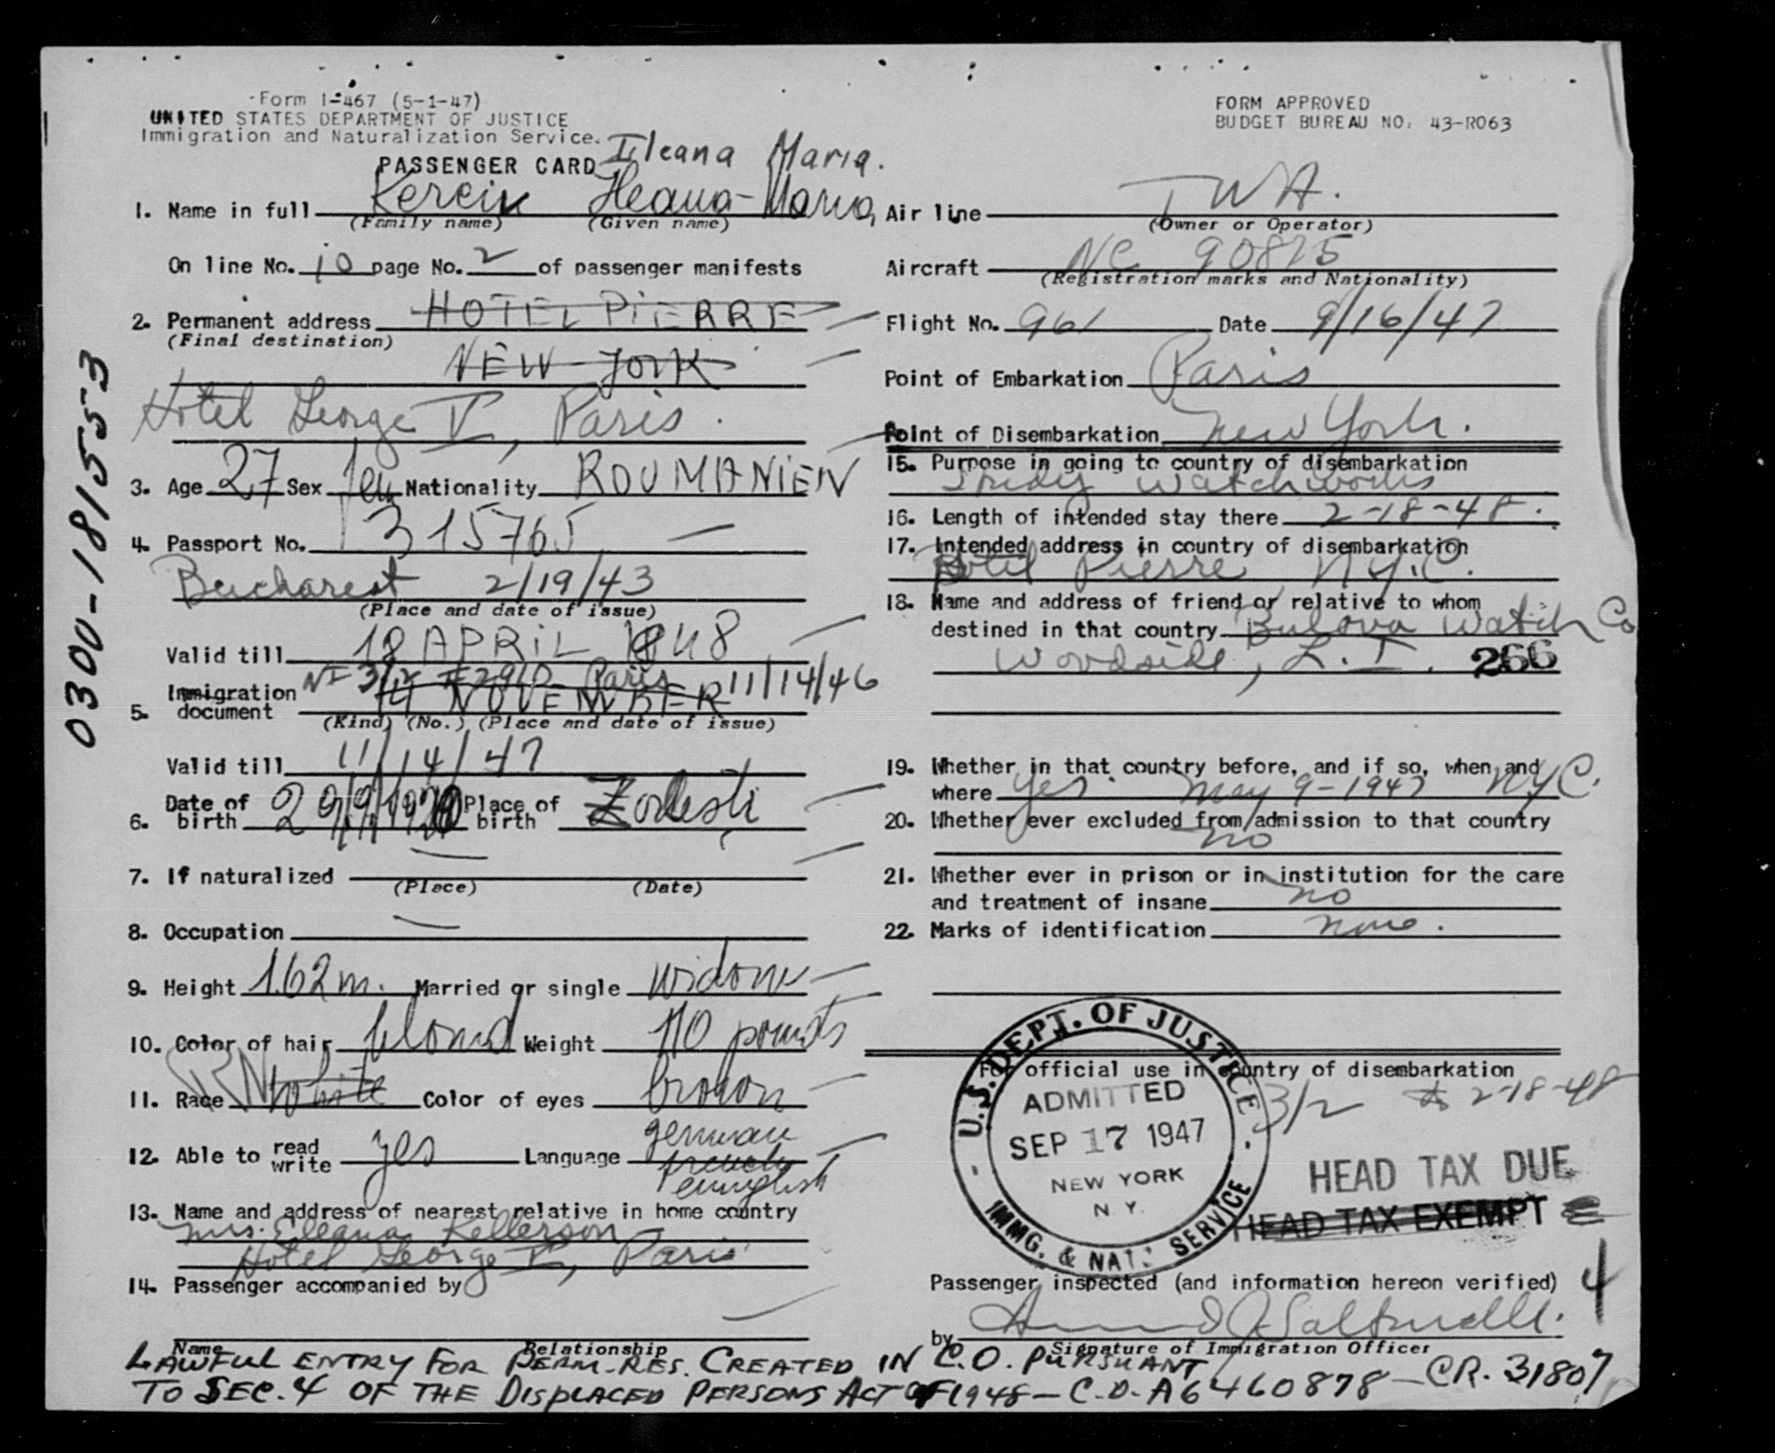 Form I-467 (5-1-47)
UNITED STATES DEPARTMENT OF JUSTICE
Immigration and Naturalization Service.
FORM APPROVED
BUDGET BUREAU NO. 43-R063
PASSENGER CARD
Ileana Maria.
1. Name in full Kerciu Ileana-Maria
(Family name) (Given name)
On line No. 10 page No. 2 of passenger manifests
2. Permanent address HOTEL PIERRE
(Final destination)
NEW YORK
Hotel George V, Paris.
3. Age 27 Sex fem Nationality ROUMANIEN
4. Passport No. 315765
Bucharest 2/19/43
(Place and date of issue)
Valid till 18 APRIL 1948
5. Immigration document 3/2 Paris 11/14/46
14 NOVEMBER
(Kind) (No.) (Place and date of issue)
Valid till 11/14/47
6. Date of birth 29/9/1920 Place of birth
7. If naturalized —
(Place) (Date)
8. Occupation —
9. Height 1.62 m. Married or single widow
10. Color of hair blond Weight 110 pounds
11. Race white Color of eyes brown
12. Able to read write yes Language german
french
english
13. Name and address of nearest relative in home country
Mrs. Eleana Kellerson
Hotel George V, Paris
14. Passenger accompanied by
Name Relationship
Air line TWA.
(Owner or Operator)
Aircraft NC 90815
(Registration marks and Nationality)
Flight No. 961 Date 9/16/47
Point of Embarkation Paris
Point of Disembarkation New York.
15. Purpose in going to country of disembarkation
Study watchworks
16. Length of intended stay there 2-18-48.
17. Intended address in country of disembarkation
Hotel Pierre N.Y.C.
18. Name and address of friend or relative to whom
destined in that country Bulova Watch Co
Woodside, L.I. 266
19. Whether in that country before, and if so, when and
where yes. May 9-1947 NYC.
20. Whether ever excluded from admission to that country
no
21. Whether ever in prison or in institution for the care
and treatment of insane no
22. Marks of identification none.
For official use in country of disembarkation
3/2 to 2-18-48
U.S. DEPT. OF JUSTICE
ADMITTED
SEP 17 1947
NEW YORK
N.Y.
IMMG. & NAT. SERVICE
HEAD TAX DUE
HEAD TAX EXEMPT
4
Passenger inspected (and information hereon verified)
by
Signature of Immigration Officer
LAWFUL ENTRY FOR PERM. RES. CREATED IN C.O. PURSUANT
TO SEC. 4 OF THE DISPLACED PERSONS ACT OF 1948 — C.O. A6460878 — CR. 31807
0300-181553